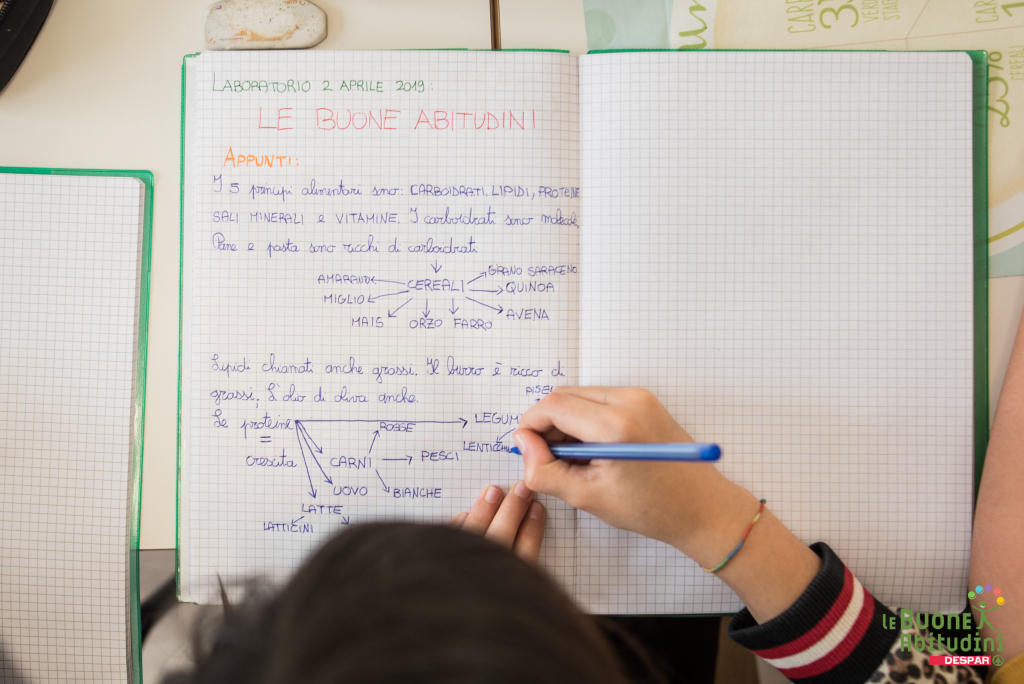 LABORATORIO 2 APRILE 2019:
LE BUONE ABITUDINI
APPUNTI:
I 5 principi alimentari sono: CARBOIDRATI, LIPIDI, PROTEINE
SALI MINERALI e VITAMINE. I carboidrati sono molecole,
Pane e pasta sono ricchi di carboidrati
AMARANTO CEREALI GRANO SARACENO
MIGLIO QUINOA
MAIS ORZO FARRO AVENA
Lipidi chiamati anche grassi. Il burro è ricco di
grassi, L'olio di oliva anche.
PISEL
Le proteine ROSSE LEGUMI
LENTICCHI
crescita CARNI PESCI
UOVO BIANCHE
LATTE
LATTICINI
CARB
35
VERD
25%
CEREALI
le BUONE
Abitudini
DESPAR